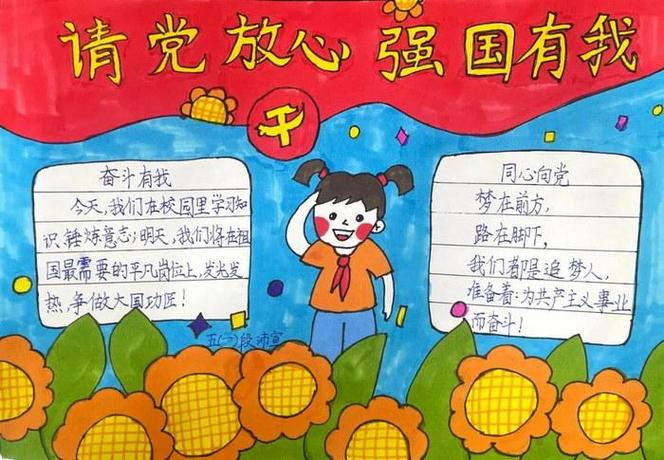 请党放心 强国有我
奋斗有我
今天,我们在校园里学习知
识锤炼意志;明天,我们将在祖
国最需要的平凡岗位上,发光发
热,争做大国功匠!
同心向党
梦在前方,
路在脚下,
我们都是追梦人,
准备着:为共产主义事业
而奋斗!
五(一)段沛宣